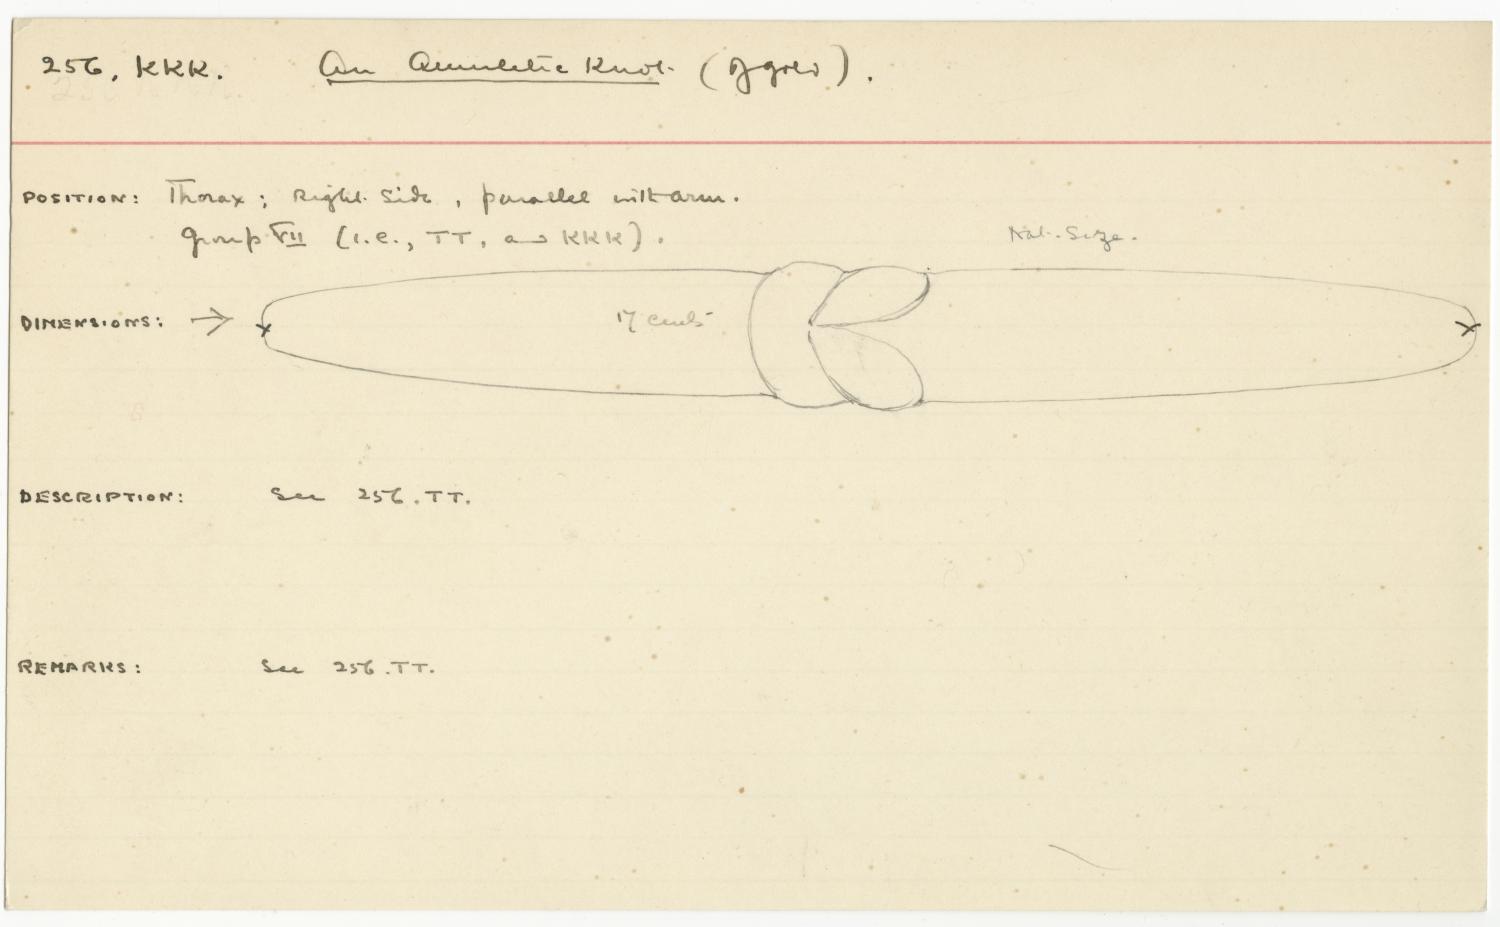 256, KKK. An Amuletic Knot (of gold).
POSITION: Thorax; Right Side, parallel with arm.
Group VII (i.e., TT, and KKK).
Nat. Size.
DIMENSIONS: → 17 cents
DESCRIPTION: See 256.TT.
REMARKS: See 256.TT.